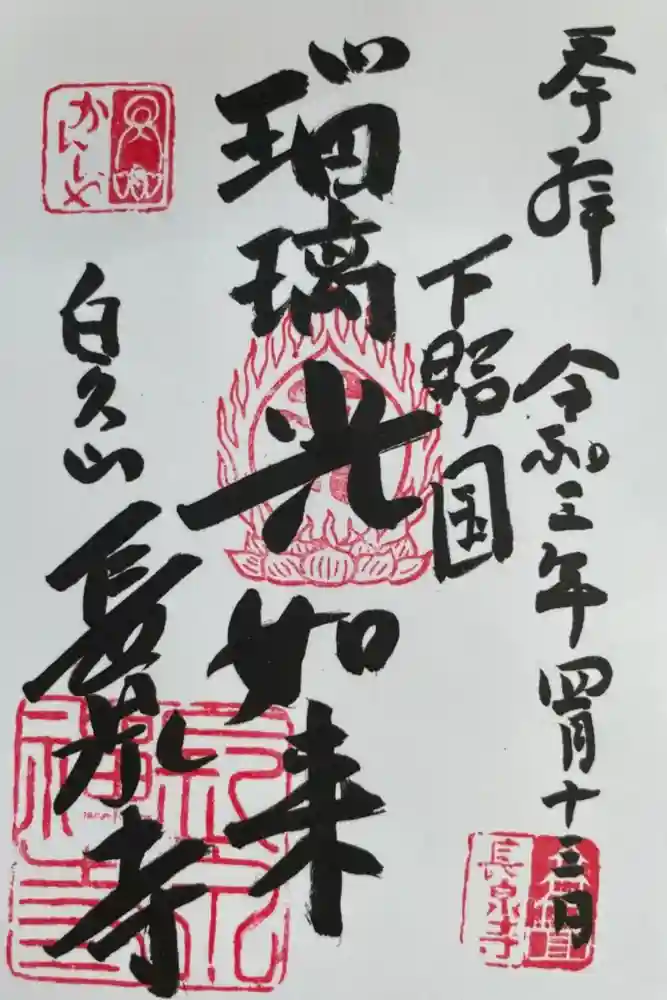 奉拝
令和三年四月十三日
下野国
瑠璃光如来
白久山
長泉寺
長泉寺